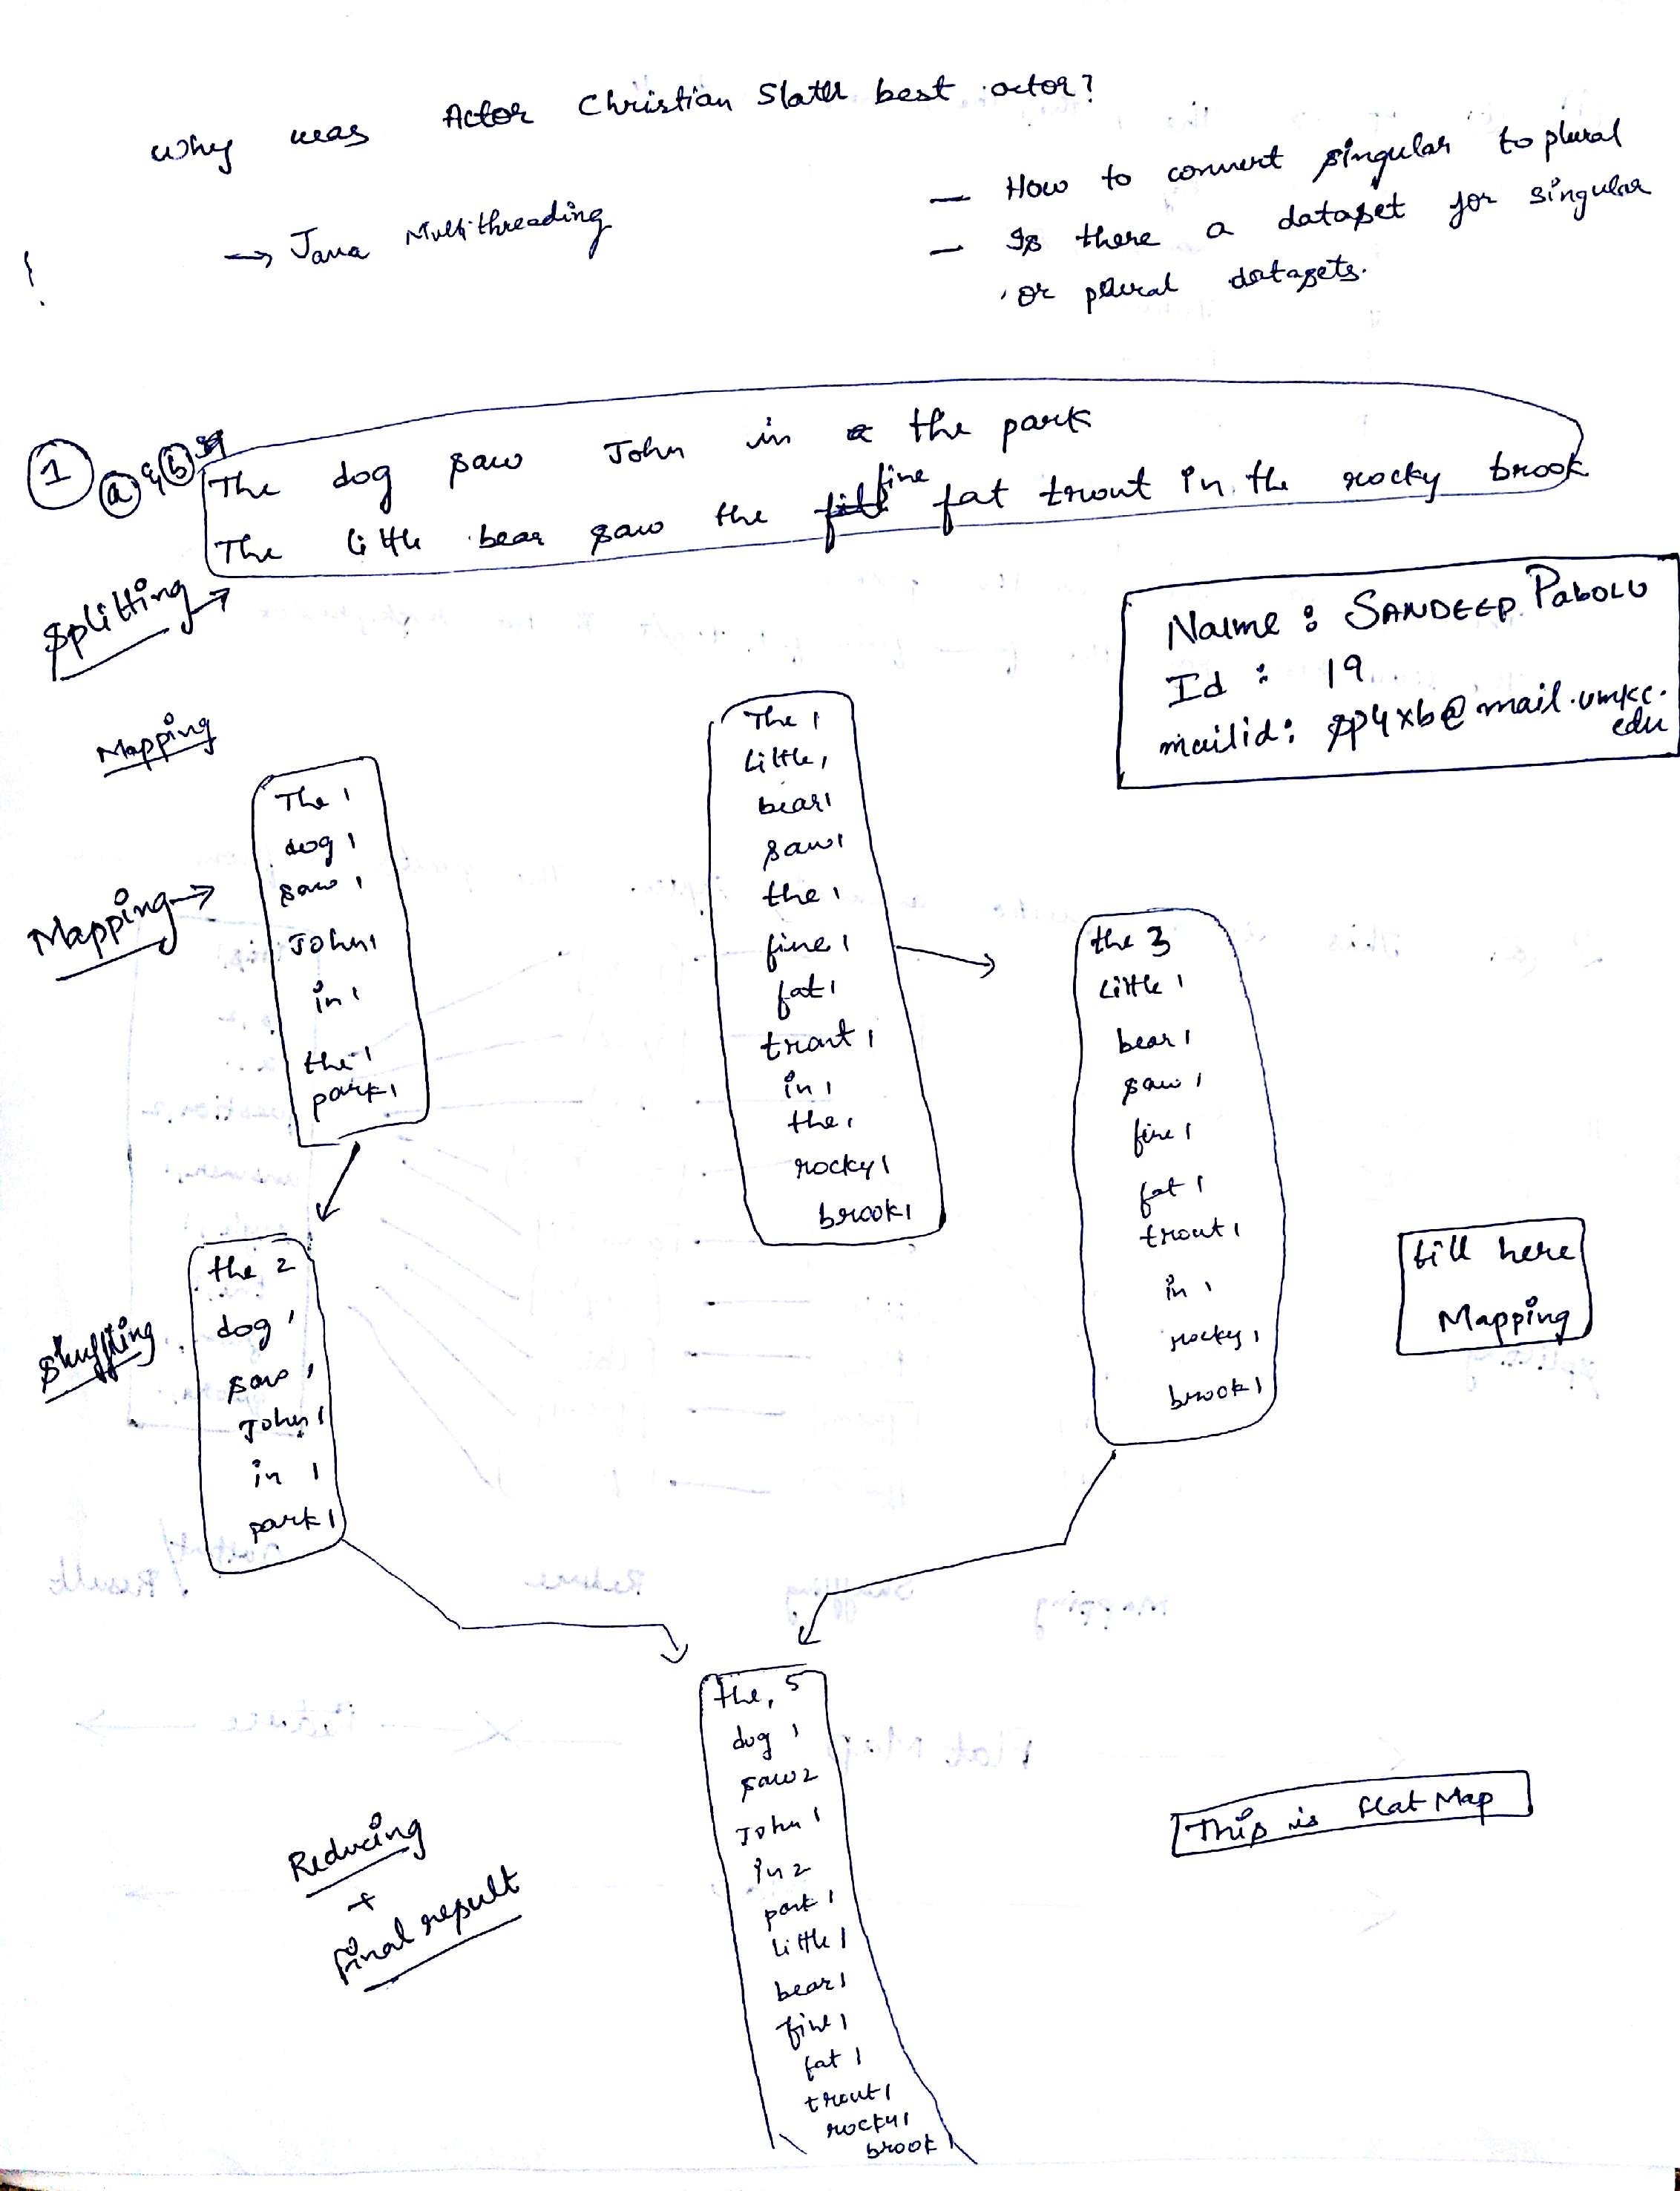 Why was Actor Christian Slater best actor?
→ Java Multithreading
— How to convert singular to plural
— Is there a dataset for singular
or plural datasets.
1 a & b
The dog saw John in the park
The little bear saw the fine fat trout in the rocky brook
Splitting →
Name : SANDEEP PABOLU
Id : 19
mailid: sp4xb@mail.umkc.
edu
Mapping
Mapping →
The 1
dog 1
saw 1
John 1
in 1
the 1
park 1
The 1
Little 1
bear 1
saw 1
the 1
fine 1
fat 1
trout 1
in 1
the 1
rocky 1
brook 1
the 3
Little 1
bear 1
saw 1
fine 1
fat 1
trout 1
in 1
rocky 1
brook 1
till here
Mapping
Shuffling
the 2
dog 1
saw 1
John 1
in 1
park 1
Reducing
+
Final result
the, 5
dog 1
saw 2
John 1
in 2
park 1
Little 1
bear 1
fine 1
fat 1
trout 1
rocky 1
brook 1
This is flat Map